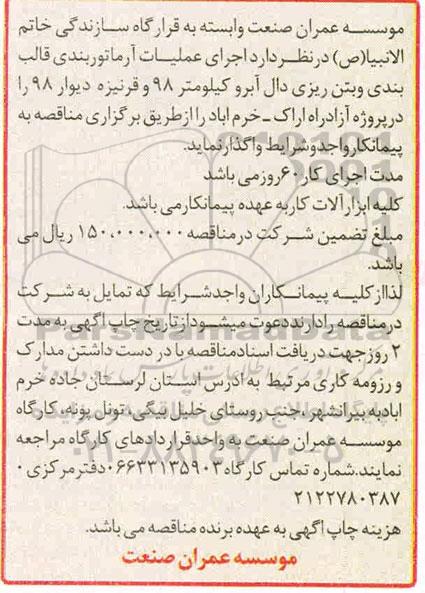 موسسه عمران صنعت وابسته به قرارگاه سازندگی خاتم
الانبیا(ص) درنظر دارد اجرای عملیات آرماتوربندی قالب
بندی وبتن ریزی دال آبرو کیلومتر ۹۸ و قرنیزه دیوار ۹۸ را
در پروژه آزادراه اراک -خرم اباد را ازطریق برگزاری مناقصه به
پیمانکارواجدوشرایط واگذارنماید.
مدت اجرای کار ۶۰روزمی باشد
کلیه ابزارآلات کاربه عهده پیمانکارمی باشد.
مبلغ تضمین شرکت درمناقصه ۱۵۰،۰۰۰،۰۰۰ ریال می
باشد.
لذااز کلیه پیمانکاران واجدشرایط که تمایل به شرکت
درمناقصه رادارنددعوت میشودازتاریخ چاپ اگهی به مدت
۲ روزجهت دریافت اسنادمناقصه با در دست داشتن مدارک
و رزومه کاری مرتبط به ادرس استان لرستان جاده خرم
ابادبه بیرانشهر،جنب روستای خلیل بیگی، تونل پونه، کارگاه
موسسه عمران صنعت به واحدقراردادهای کارگاه مراجعه
نمایند.شماره تماس کارگاه ۰۶۶۳۳۱۳۵۹۰۳دفترمرکزی ۰
۲۱۲۲۷۸۰۳۸۷
هزینه چاپ اگهی به عهده برنده مناقصه می باشد.
موسسه عمران صنعت
ParsNamadData
۰۲۱-۸۸۳۴۹۶۷۰-۵